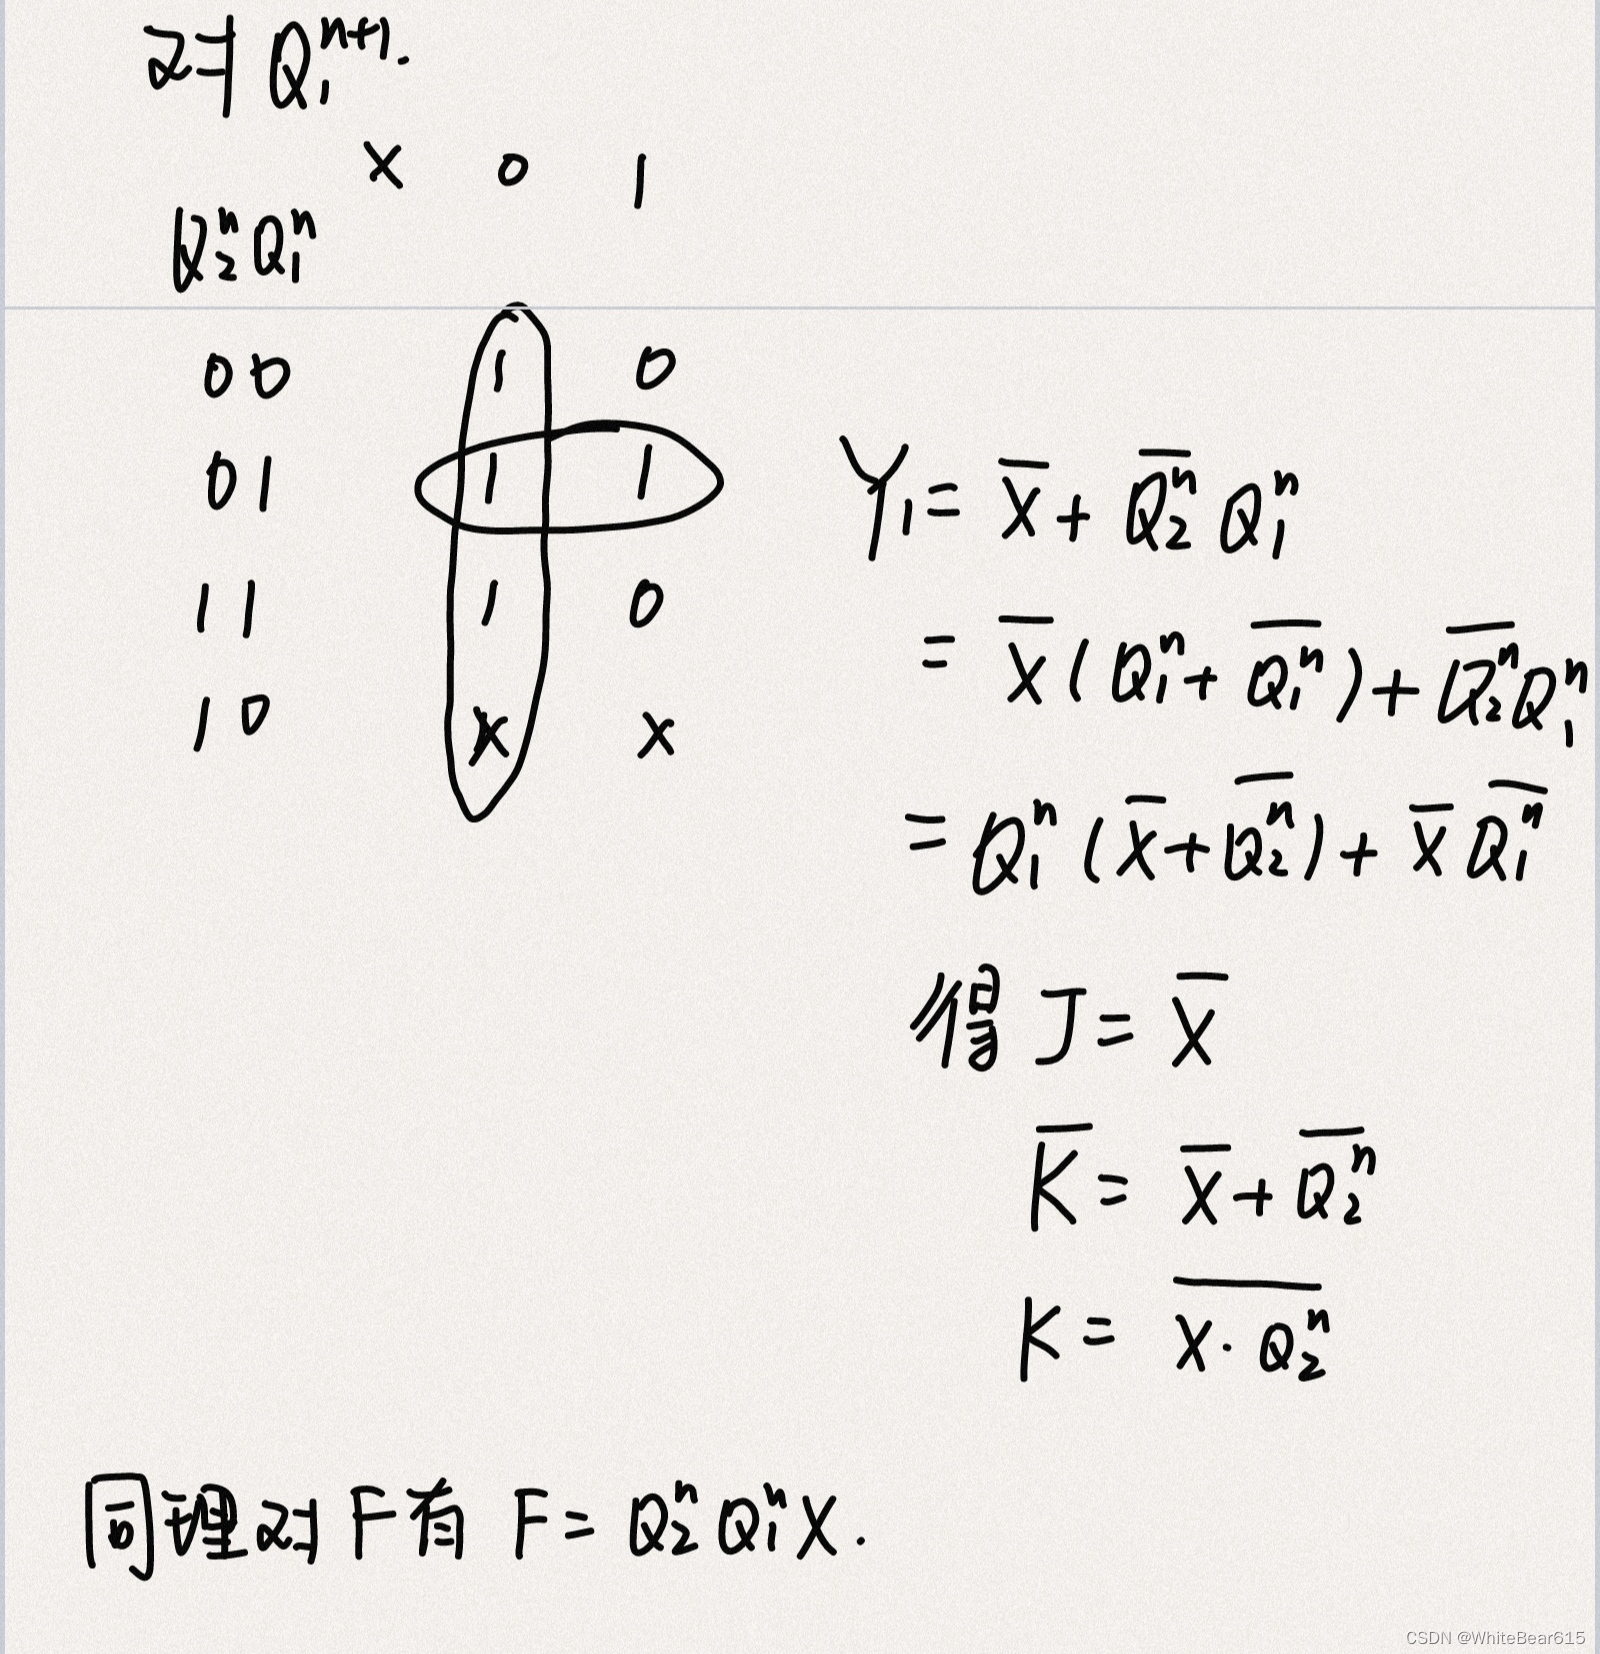 对 Q₁ⁿ⁺¹.
X 0 1
Q₂ⁿQ₁ⁿ
00 1 0
01 1 1
11 1 0
10 X X
Y₁ = X̅ + \overline{Q₂ⁿ} Q₁ⁿ
= X̅ ( Q₁ⁿ + \overline{Q₁ⁿ} ) + \overline{Q₂ⁿ} Q₁ⁿ
= Q₁ⁿ ( X̅ + \overline{Q₂ⁿ} ) + X̅ \overline{Q₁ⁿ}
得 J = X̅
K̅ = X̅ + \overline{Q₂ⁿ}
K = \overline{X · Q₂ⁿ}
同理对 F 有 F = Q₂ⁿ Q₁ⁿ X.
CSDN @WhiteBear615